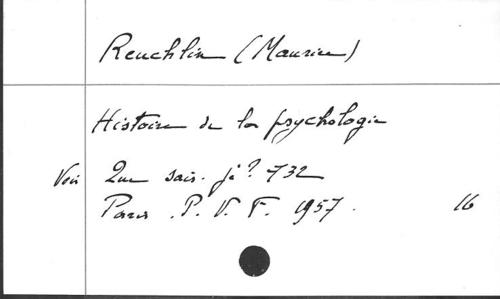 Reuchlin (Maurice)
Histoire de la psychologie
Voir Que sais-je? 732
Paris. P. U. F. 1957. 16